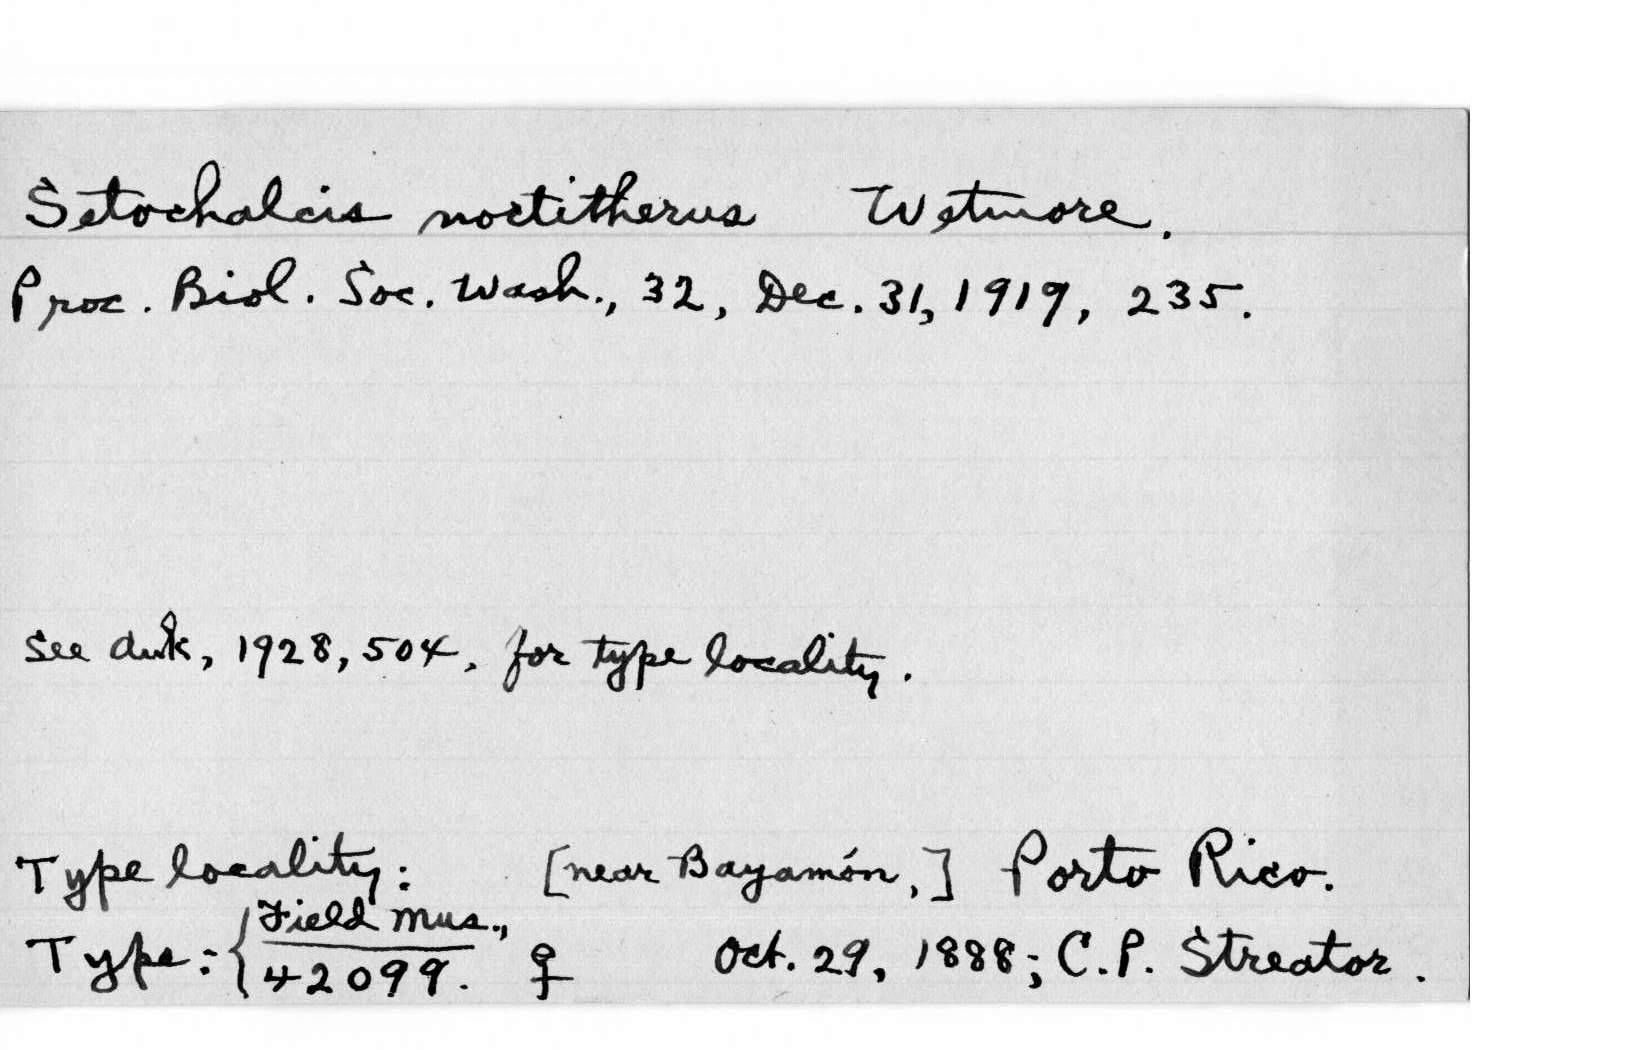 Setochalcis noctitherus Wetmore.
Proc. Biol. Soc. Wash., 32, Dec. 31, 1919, 235.
See Auk, 1928, 504, for type locality.
Type locality: [near Bayamón,] Porto Rico.
Type: { Field Mus., 42099. ♀ Oct. 29, 1888; C.P. Streator.